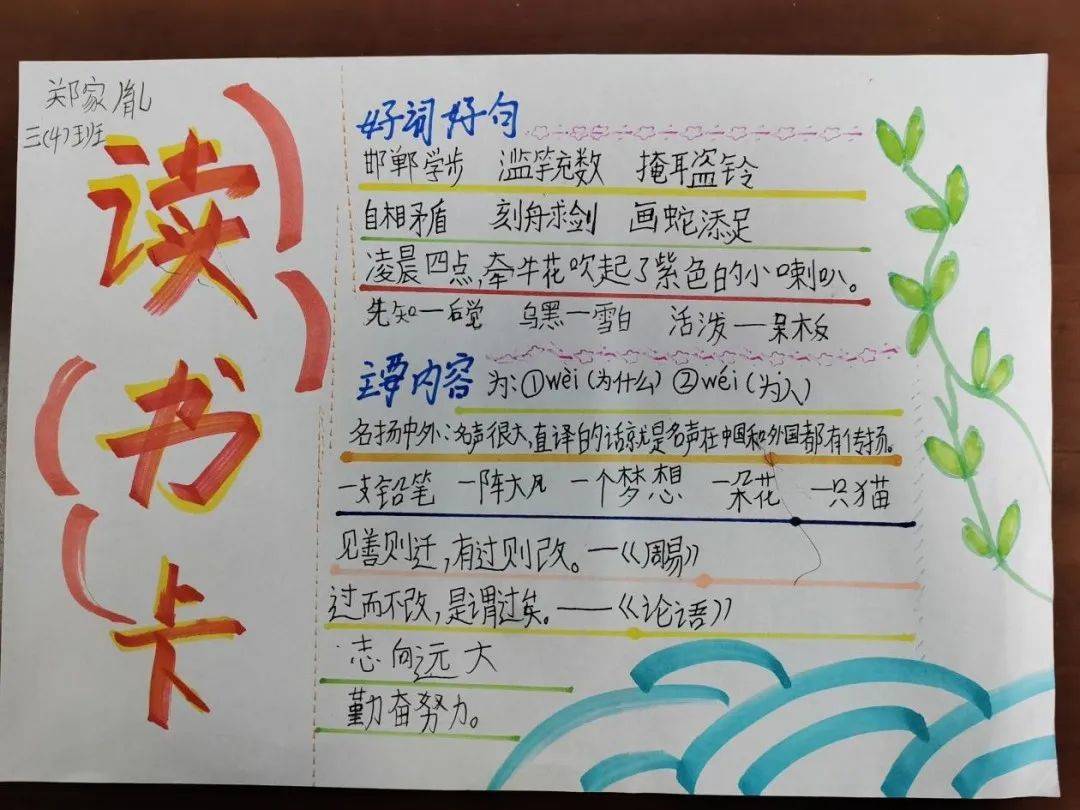 郑家胤
三(4)班
读书卡
好词好句
邯郸学步 滥竽充数 掩耳盗铃
自相矛盾 刻舟求剑 画蛇添足
凌晨四点,牵牛花吹起了紫色的小喇叭。
先知—后觉 乌黑—雪白 活泼—呆板
主要内容
为:①wèi(为什么)②wéi(为人)
名扬中外:名声很大,直译的话就是名声在中国和外国都有传扬。
一支铅笔 一阵大风 一个梦想 一朵花 一只猫
见善则迁,有过则改。—《周易》
过而不改,是谓过矣。——《论语》
志向远大
勤奋努力。